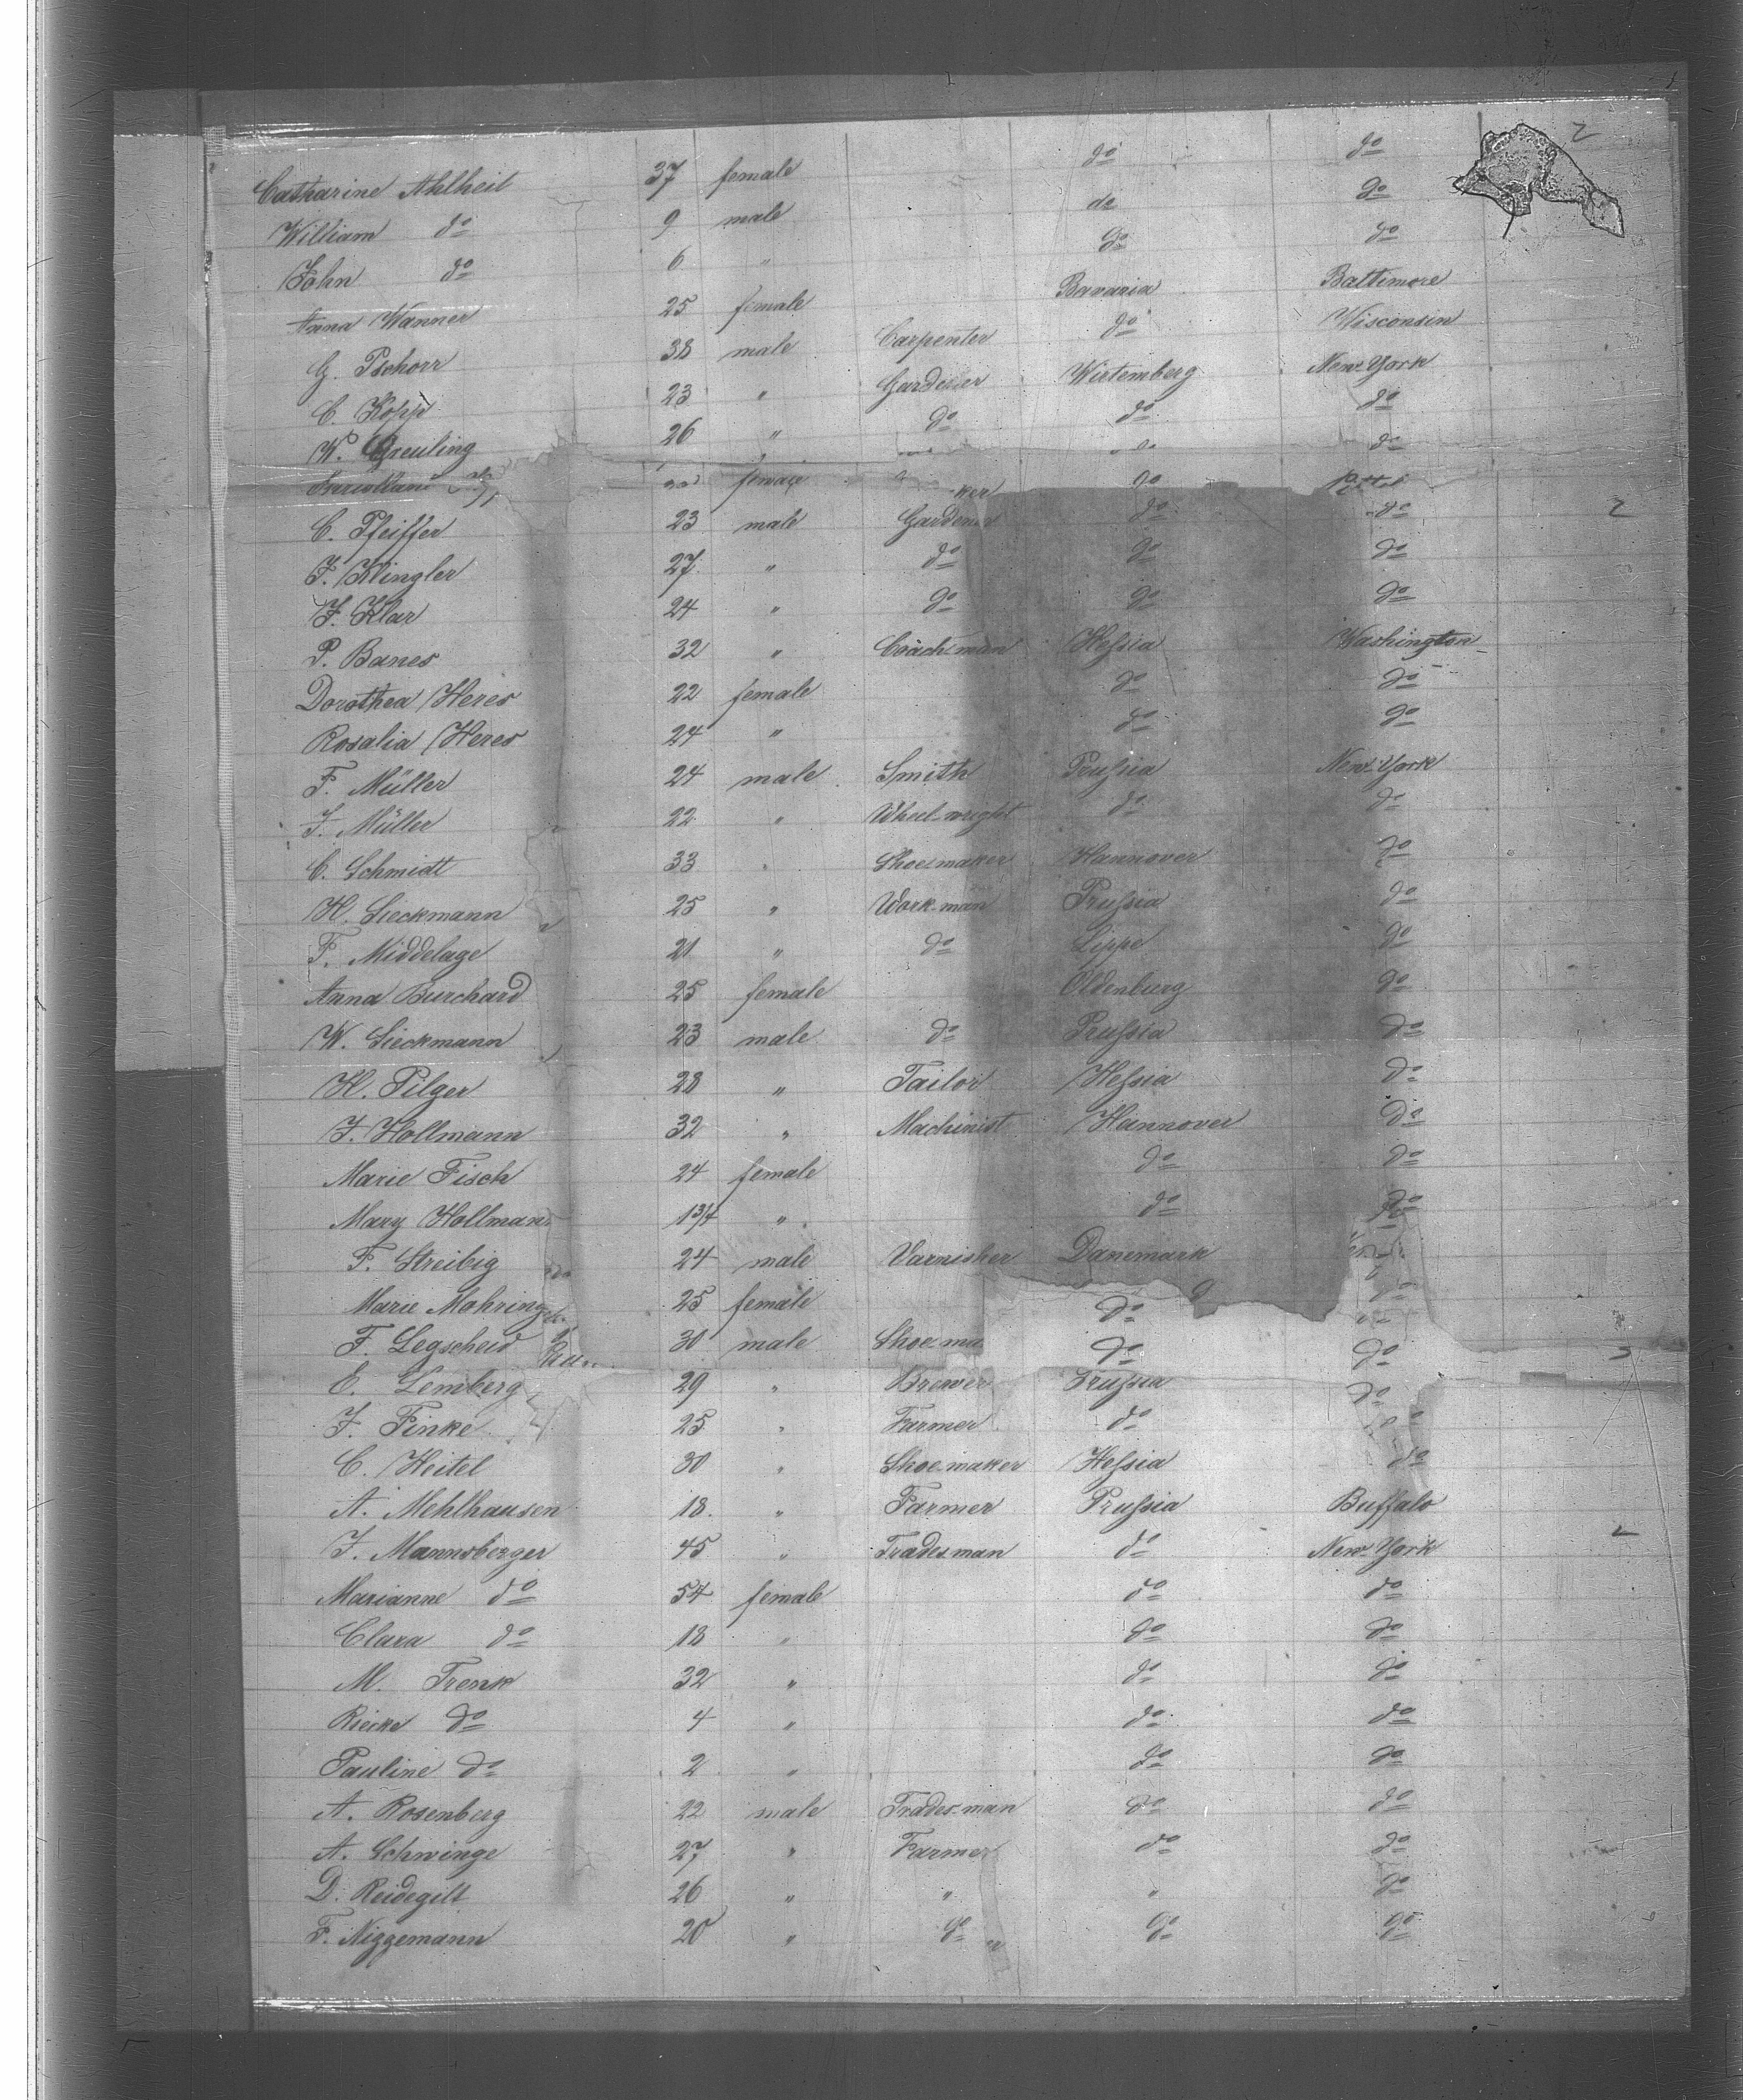 Catharine Ahlheit 37 female do do
William do 9 male do do
John do 6 " do do
Anna Wanner 25 female Bavaria Baltimore
G. Pschorr 38 male Carpenter do Wisconsin
C. Kopp 23 " Gardener Wirtemberg New-York
W. Greuling 26 " do do do
female do
C. Pfeiffer 23 male Gardener do do
F. Klingler 27 " do do do
F. Klar 24 " do do do
P. Banes 32 " Coachman Hessia Washington
Dorothea Heres 22 female do do
Rosalia Heres 24 " do do
F. Müller 24 male Smith Prussia New-York
F. Müller 22 " Wheel-wright do do
C. Schmidt 33 " Shoe-maker Hannover do
H. Sieckmann 25 " Work-man Prussia do
F. Middelage 21 " do Lippe do
Anna Burchard 25 female Oldenburg do
W. Sieckmann 23 male do Prussia do
H. Pilger 28 " Tailor Hessia do
F. Hollmann 32 " Machinist Hannover do
Marie Fisch 24 female do do
Mary Hollmann 1 3/4 " do do
F. Streibig 24 male Varnisher Danemark
Marie Mohring 25 female do do
F. Legscheid 30 male Shoe-ma do do
E. Lemberg 29 " Brewer Prussia do
F. Finke 25 " Farmer do
C. Heitel 30 " Shoe-maker Hessia do
A. Mehlhausen 18 " Farmer Prussia Buffalo
F. Mannsberger 45 " Tradesman do New-York
Marianne do 54 female do do
Clara do 18 " do do
M. Trenk 32 " do do
Riecke do 4 " do do
Pauline do 2 " do do
A. Rosenberg 22 male Trades-man do do
A. Schwinge 27 " Farmer do do
D. Reidegilt 26 " " " do
F. Niggemann 20 " do do do